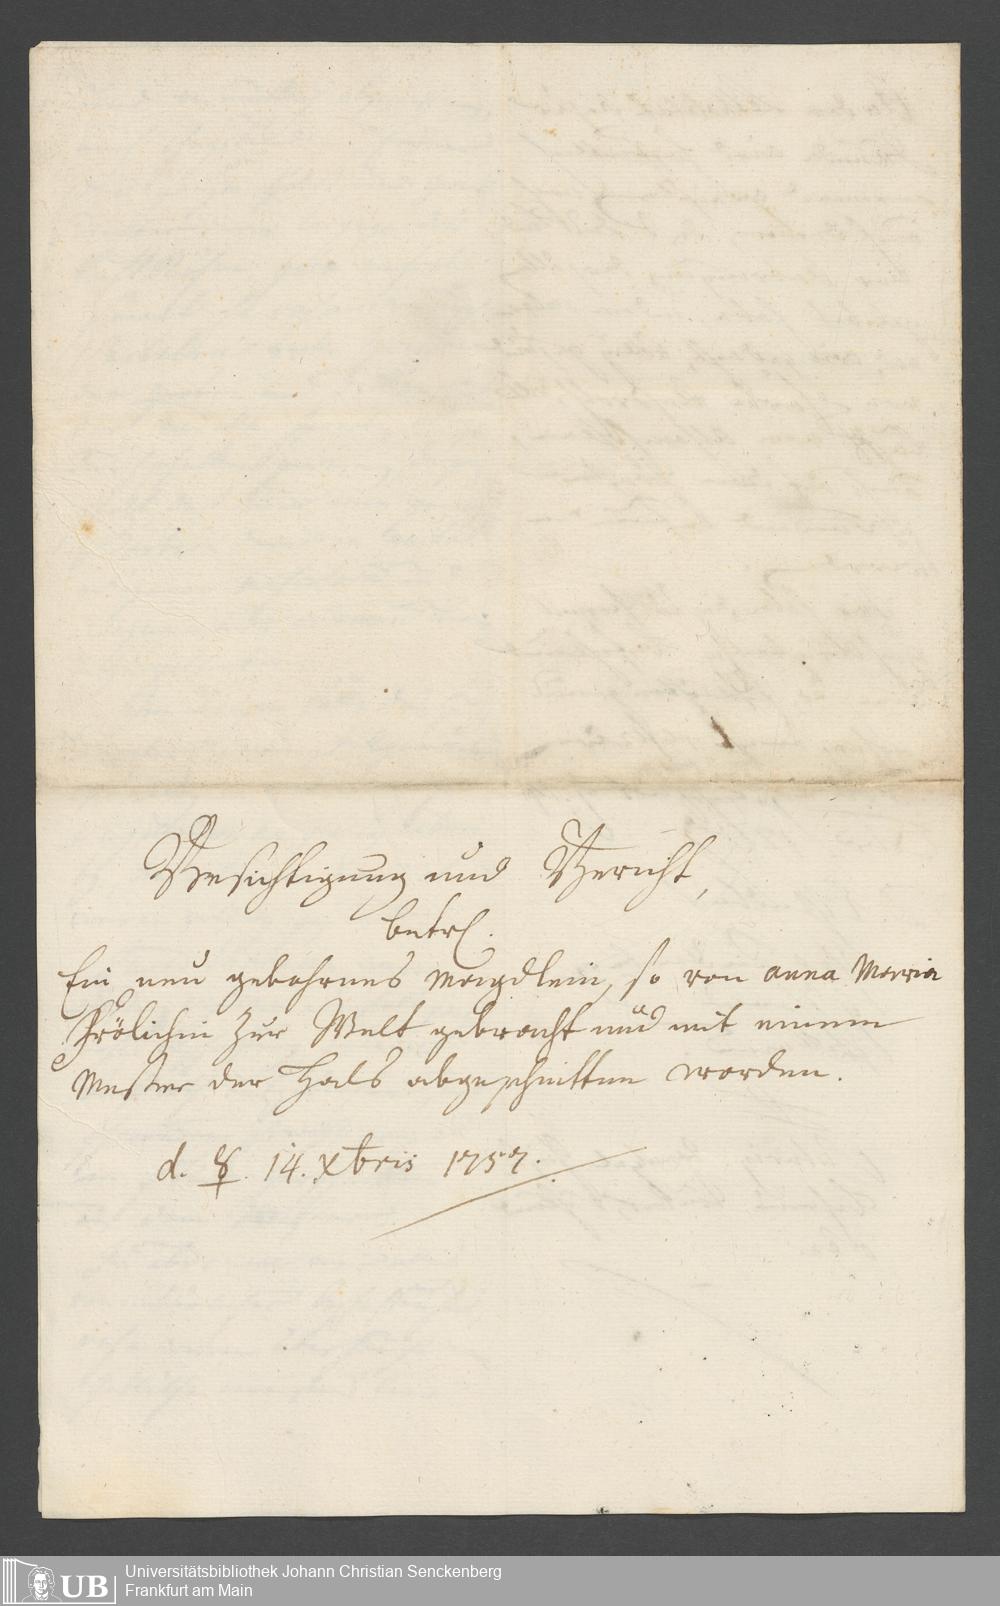 Besichtigung und Bericht,
betrl.
Ein neu gebohrnes Mägdlein, so von anna Maria
Frölichin zur Welt gebracht und mit einem
Messer der Hals abgeschnitten worden.
d. ☿. 14. Xbris 1757.
UB Universitätsbibliothek Johann Christian Senckenberg
Frankfurt am Main